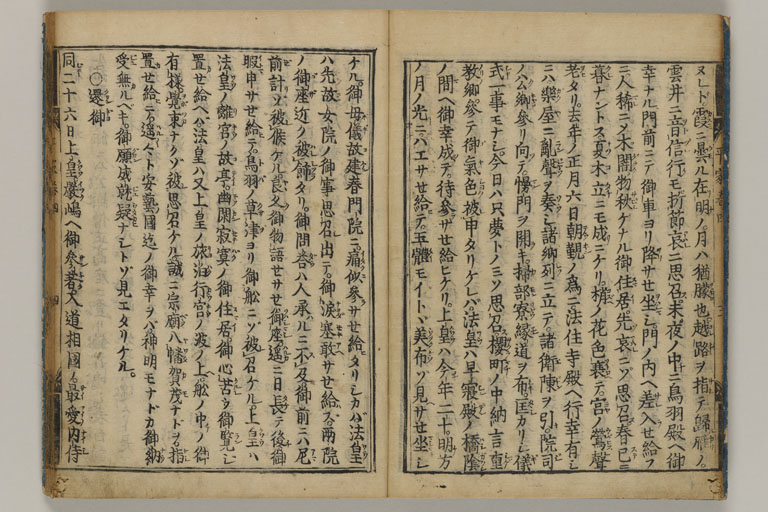 ヌレド霞ニ曇ル在明ノ月ハ猶朧也越路ヲ指テ歸鴈ノ
雲井ニ音信行モ折節哀ニ思召未夜ノ中ニ鳥羽殿ヘ御
幸ナル門前ニテ御車ヨリ降サセ坐シ門ノ内ヘ差入セ給フ
ニ人稀ニメ木闇物秋ケナル御住居先哀ニソ思召春已ニ
暮ナントス夏木立ニモ成ニケリ梢ノ花色衰テ宮ノ鶯聲
老タリ去年ノ正月六日朝覲ノ爲ニ法住寺殿ヘ行幸有シ
ニハ樂屋ニ亂聲ヲ奏シ諸卿列ニ立テ諸衛陳ヲ引院司
ノ公卿參リ向テ幔門ヲ開キ掃部寮縁道ヲ布正カリシ儀
式一事モナシ今日ハ只夢トノミソ思召櫻町ノ中納言重
教卿參テ御氣色被申タリケレバ法皇ハ早寢殿ノ橋隱
ノ間ヘ御幸成テ待參サセ給ヒケリ上皇ハ今年二十明方
ノ月ノ光ニハエサセ給テ玉體モイトヾ美布ソ見サセ坐シ
ケル御母儀故建春門院ニ痛似參サセ給タリシカハ法皇
ハ先故女院ノ御事思召出テ御涙塞敢サセ給ス兩院
ノ御座近ク被餝タリ御問答ハ人承ルニ不及御前ニハ尼
前計ソ被候ケル良久御物語セサセ御座遙ニ日長テ後御
暇申サセ給テ鳥羽ノ草津ヨリ御舩ニソ被召ケル上皇ハ
法皇ノ離宮ノ故亭幽閑寂寞ノ御住居御心苦ク御覽シ
置セ給ヘハ法皇ハ又上皇ノ旅泊行宮ノ波ノ上舩ノ中ノ御
有樣覺束ナクソ被思召ケル誠ニ宗廟八幡賀茂ナドヲ指
置セ給テ遙々ト安藝國迄ノ御幸ヲバ神明モナドカ御納
受無ルヘキ御願成就疑ナシトゾ見エタリケル
〇還御
同二十六日上皇嚴嶋ヘ御參著入道相國ノ最愛ノ内侍